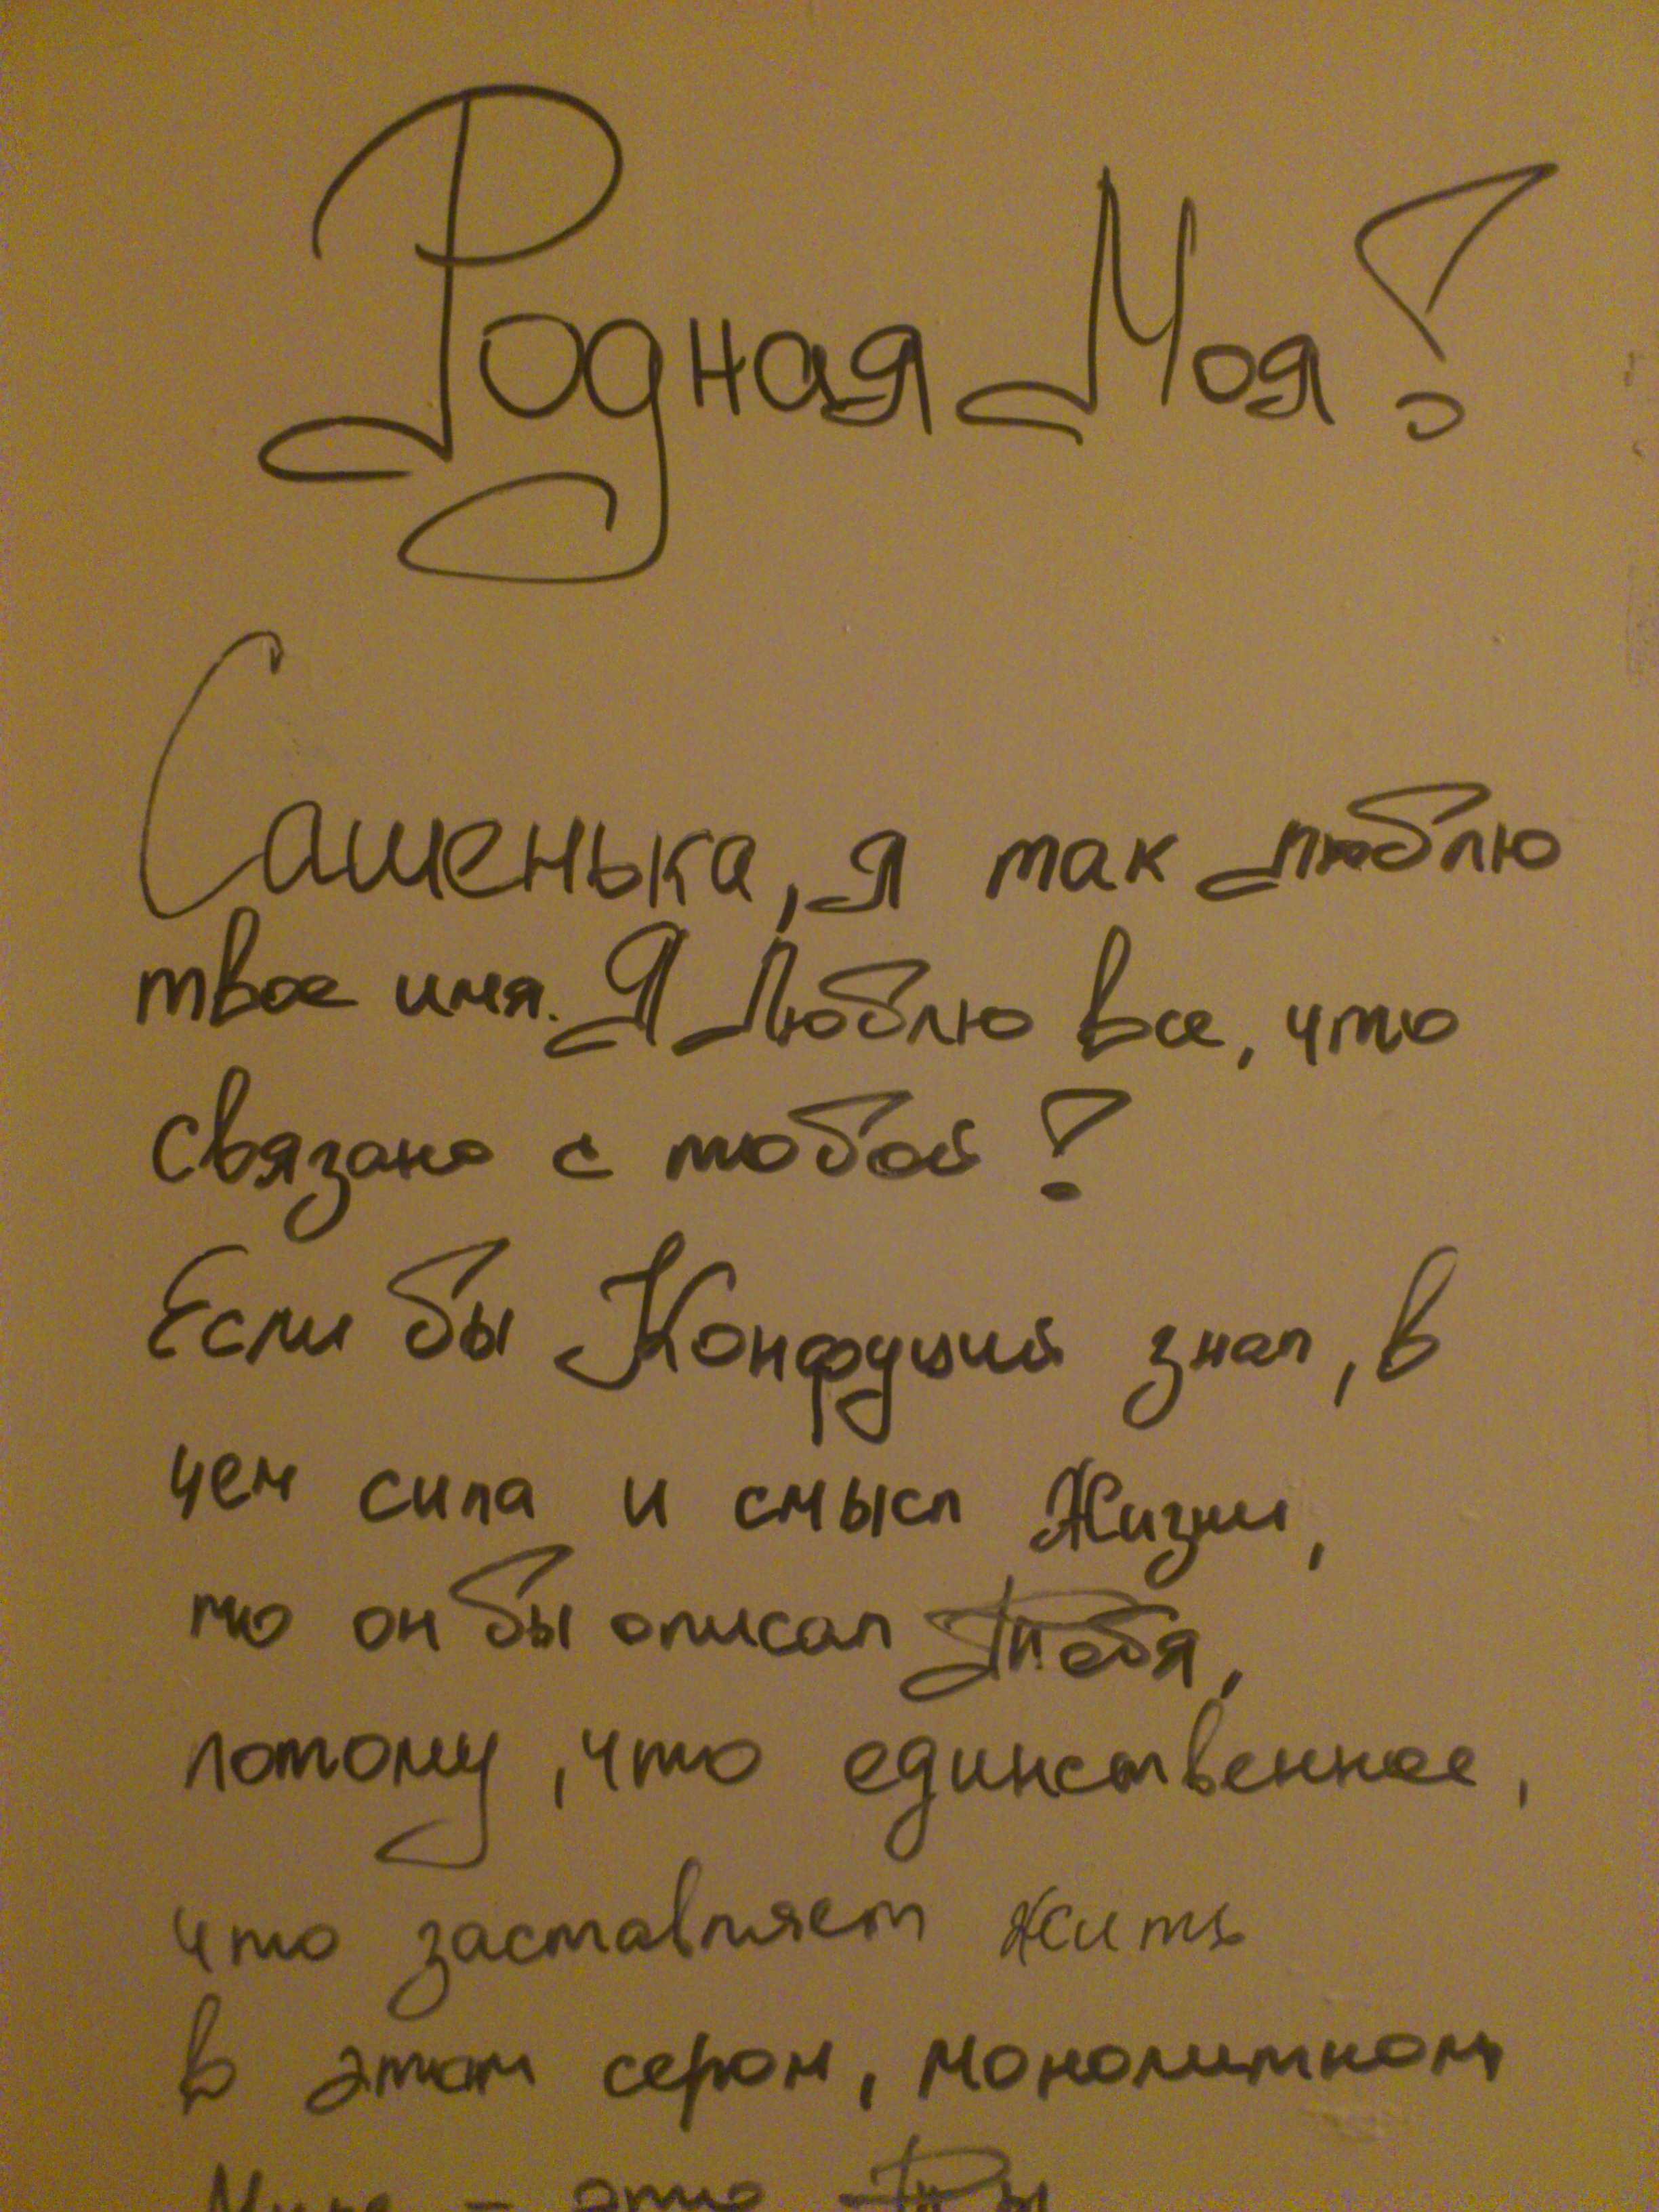 Родная Моя!
Сашенька, я так люблю
твое имя. Я Люблю все, что
связано с тобой!
Если бы Конфуций знал, в
чем сила и смысл Жизни,
то он бы описал Тебя,
потому, что единственное,
что заставляет жить
в этом сером, монолитном
Мире - это Ты